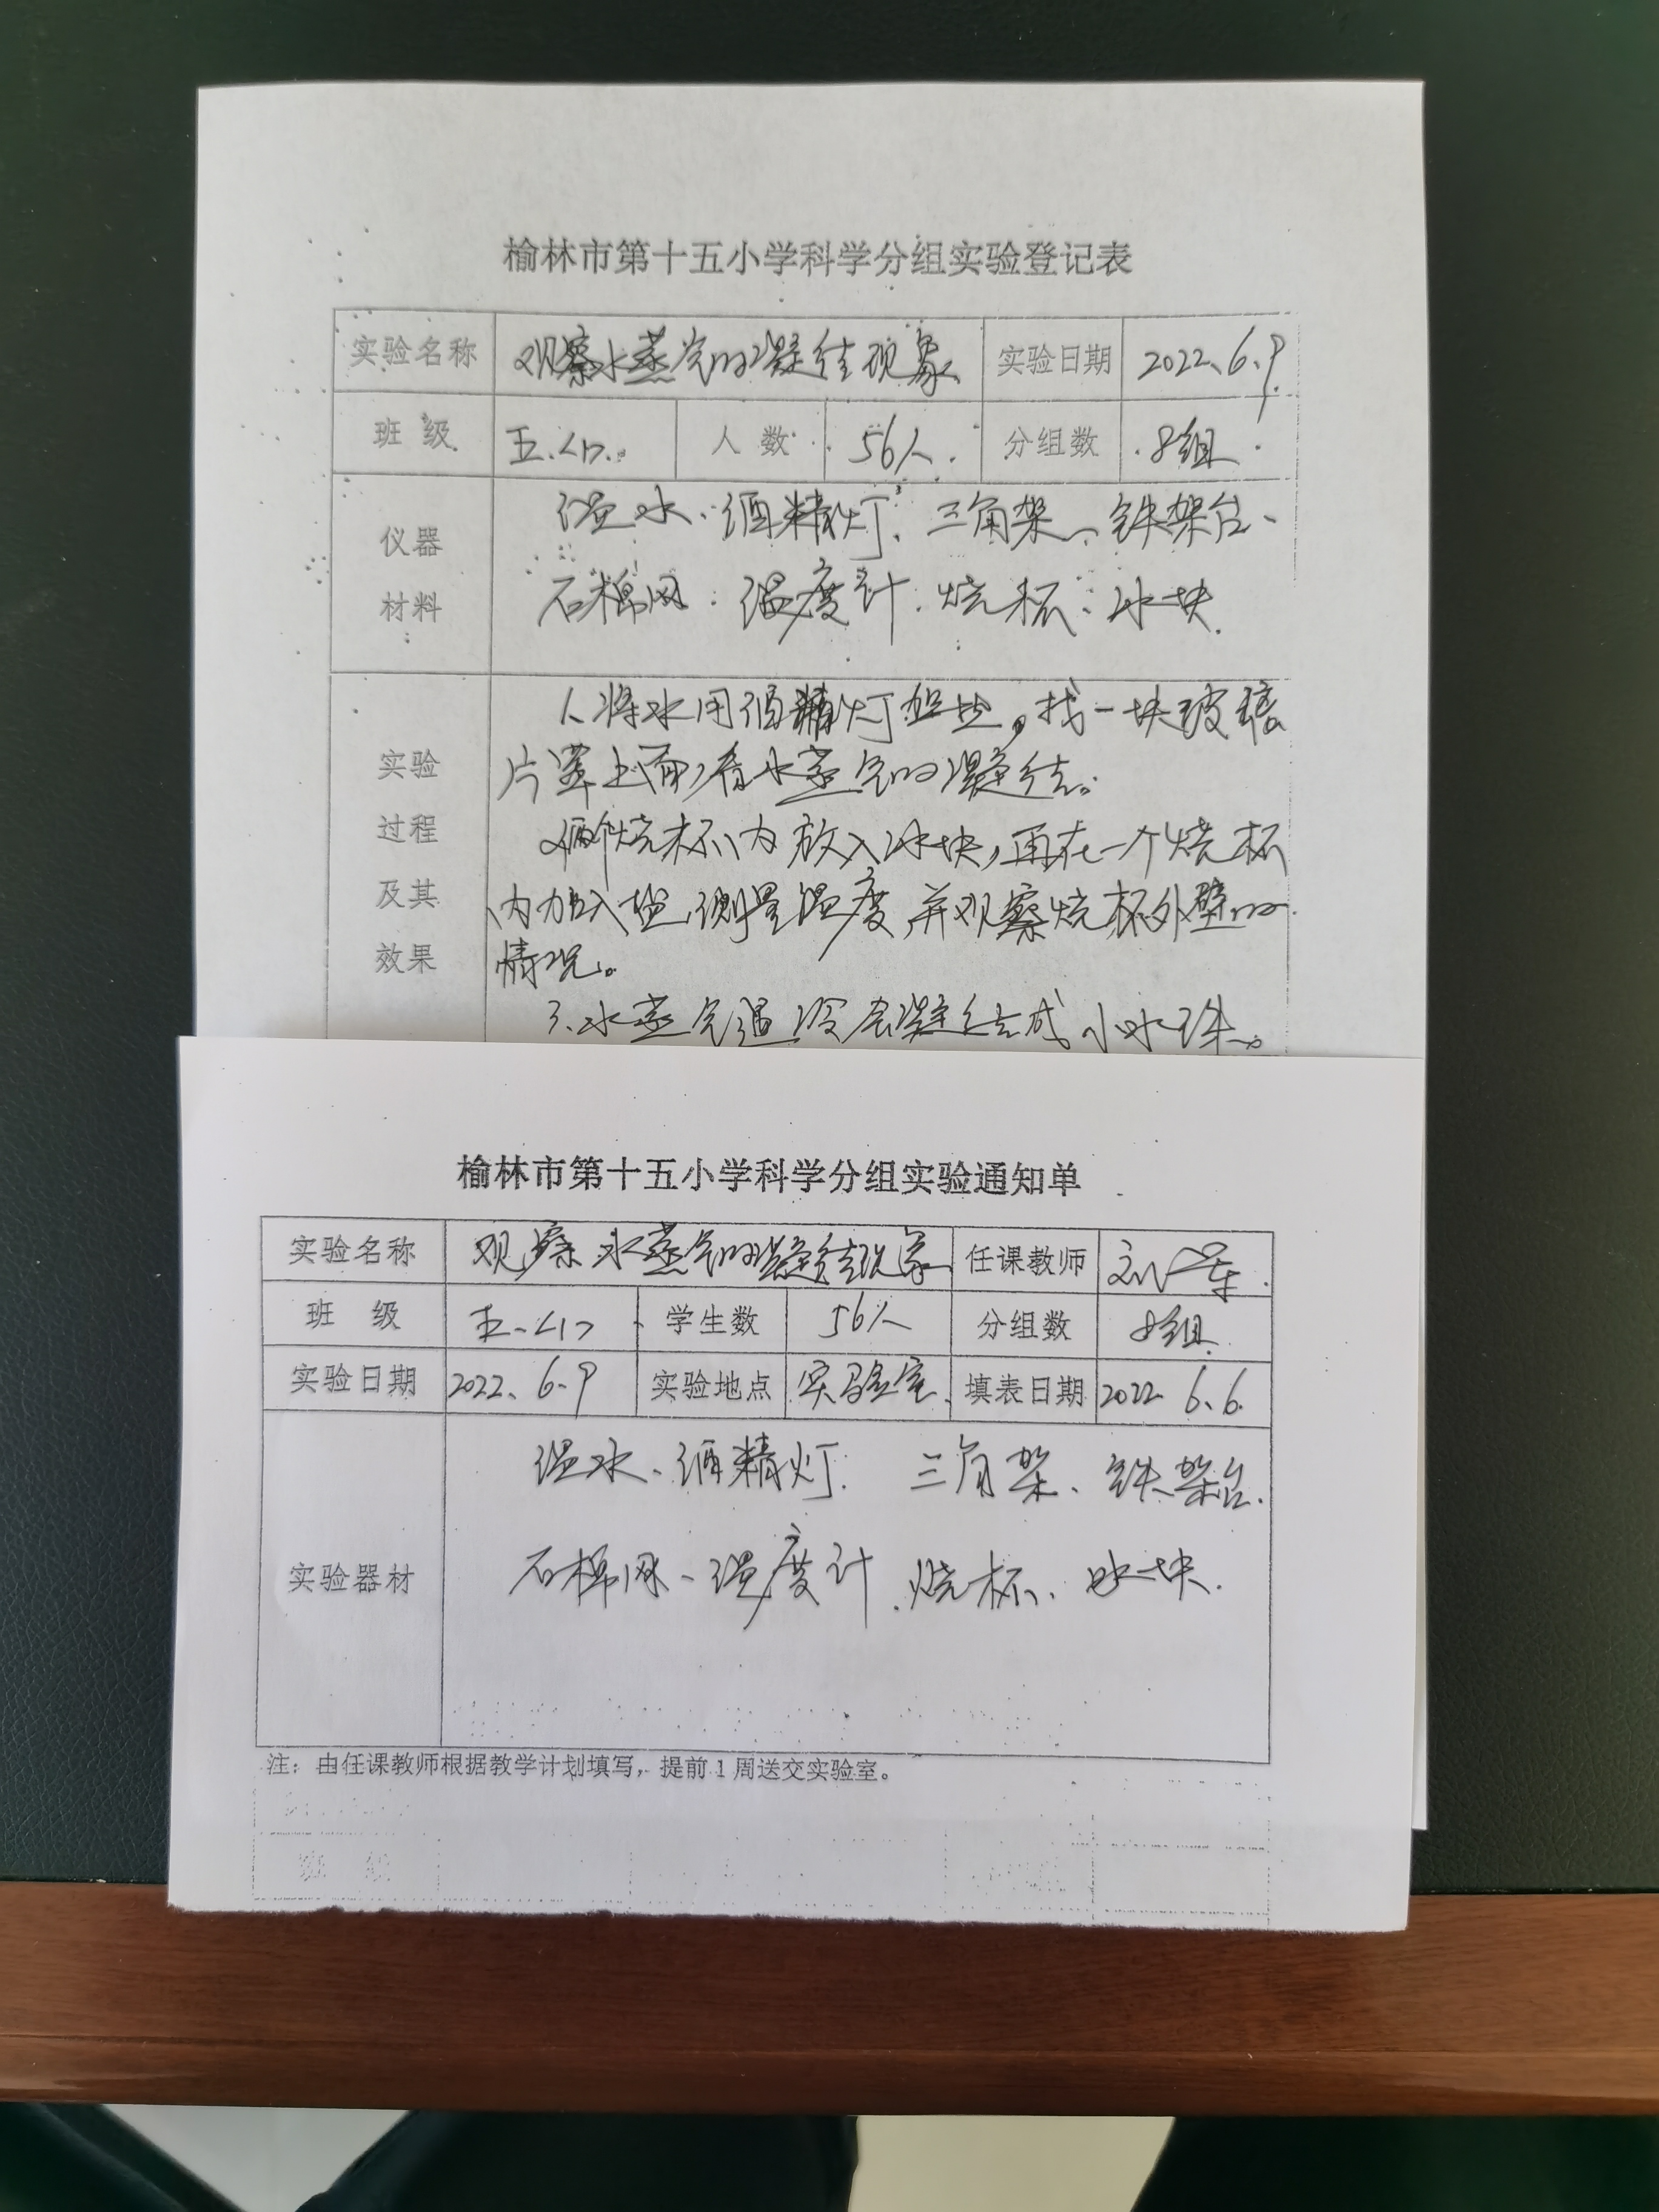 榆林市第十五小学科学分组实验登记表
实验名称 观察水蒸气的凝结现象 实验日期 2022、6、9
班 级 五、<1>、 人 数 56人 分组数 8组
仪器 材料
温水、酒精灯、三角架、铁架台、
石棉网、温度计、烧杯、冰块
实验 过程 及其 效果
1、将水用酒精灯加热,找一块玻璃
片罩上面,看水蒸气的凝结。
2、两个烧杯内放入冰块,再在一个烧杯
内加入盐,测量温度,并观察烧杯外壁的
情况。
3、水蒸气遇冷会凝结成小水珠。
榆林市第十五小学科学分组实验通知单
实验名称 观察水蒸气的凝结现象 任课教师 刘
班 级 五、<1> 学生数 56人 分组数 8组
实验日期 2022、6、9 实验地点 实验室 填表日期 2022 6、6
实验器材
温水、酒精灯、三角架、铁架台、
石棉网、温度计、烧杯、冰块.
注:由任课教师根据教学计划填写,提前1周送交实验室。
班 级